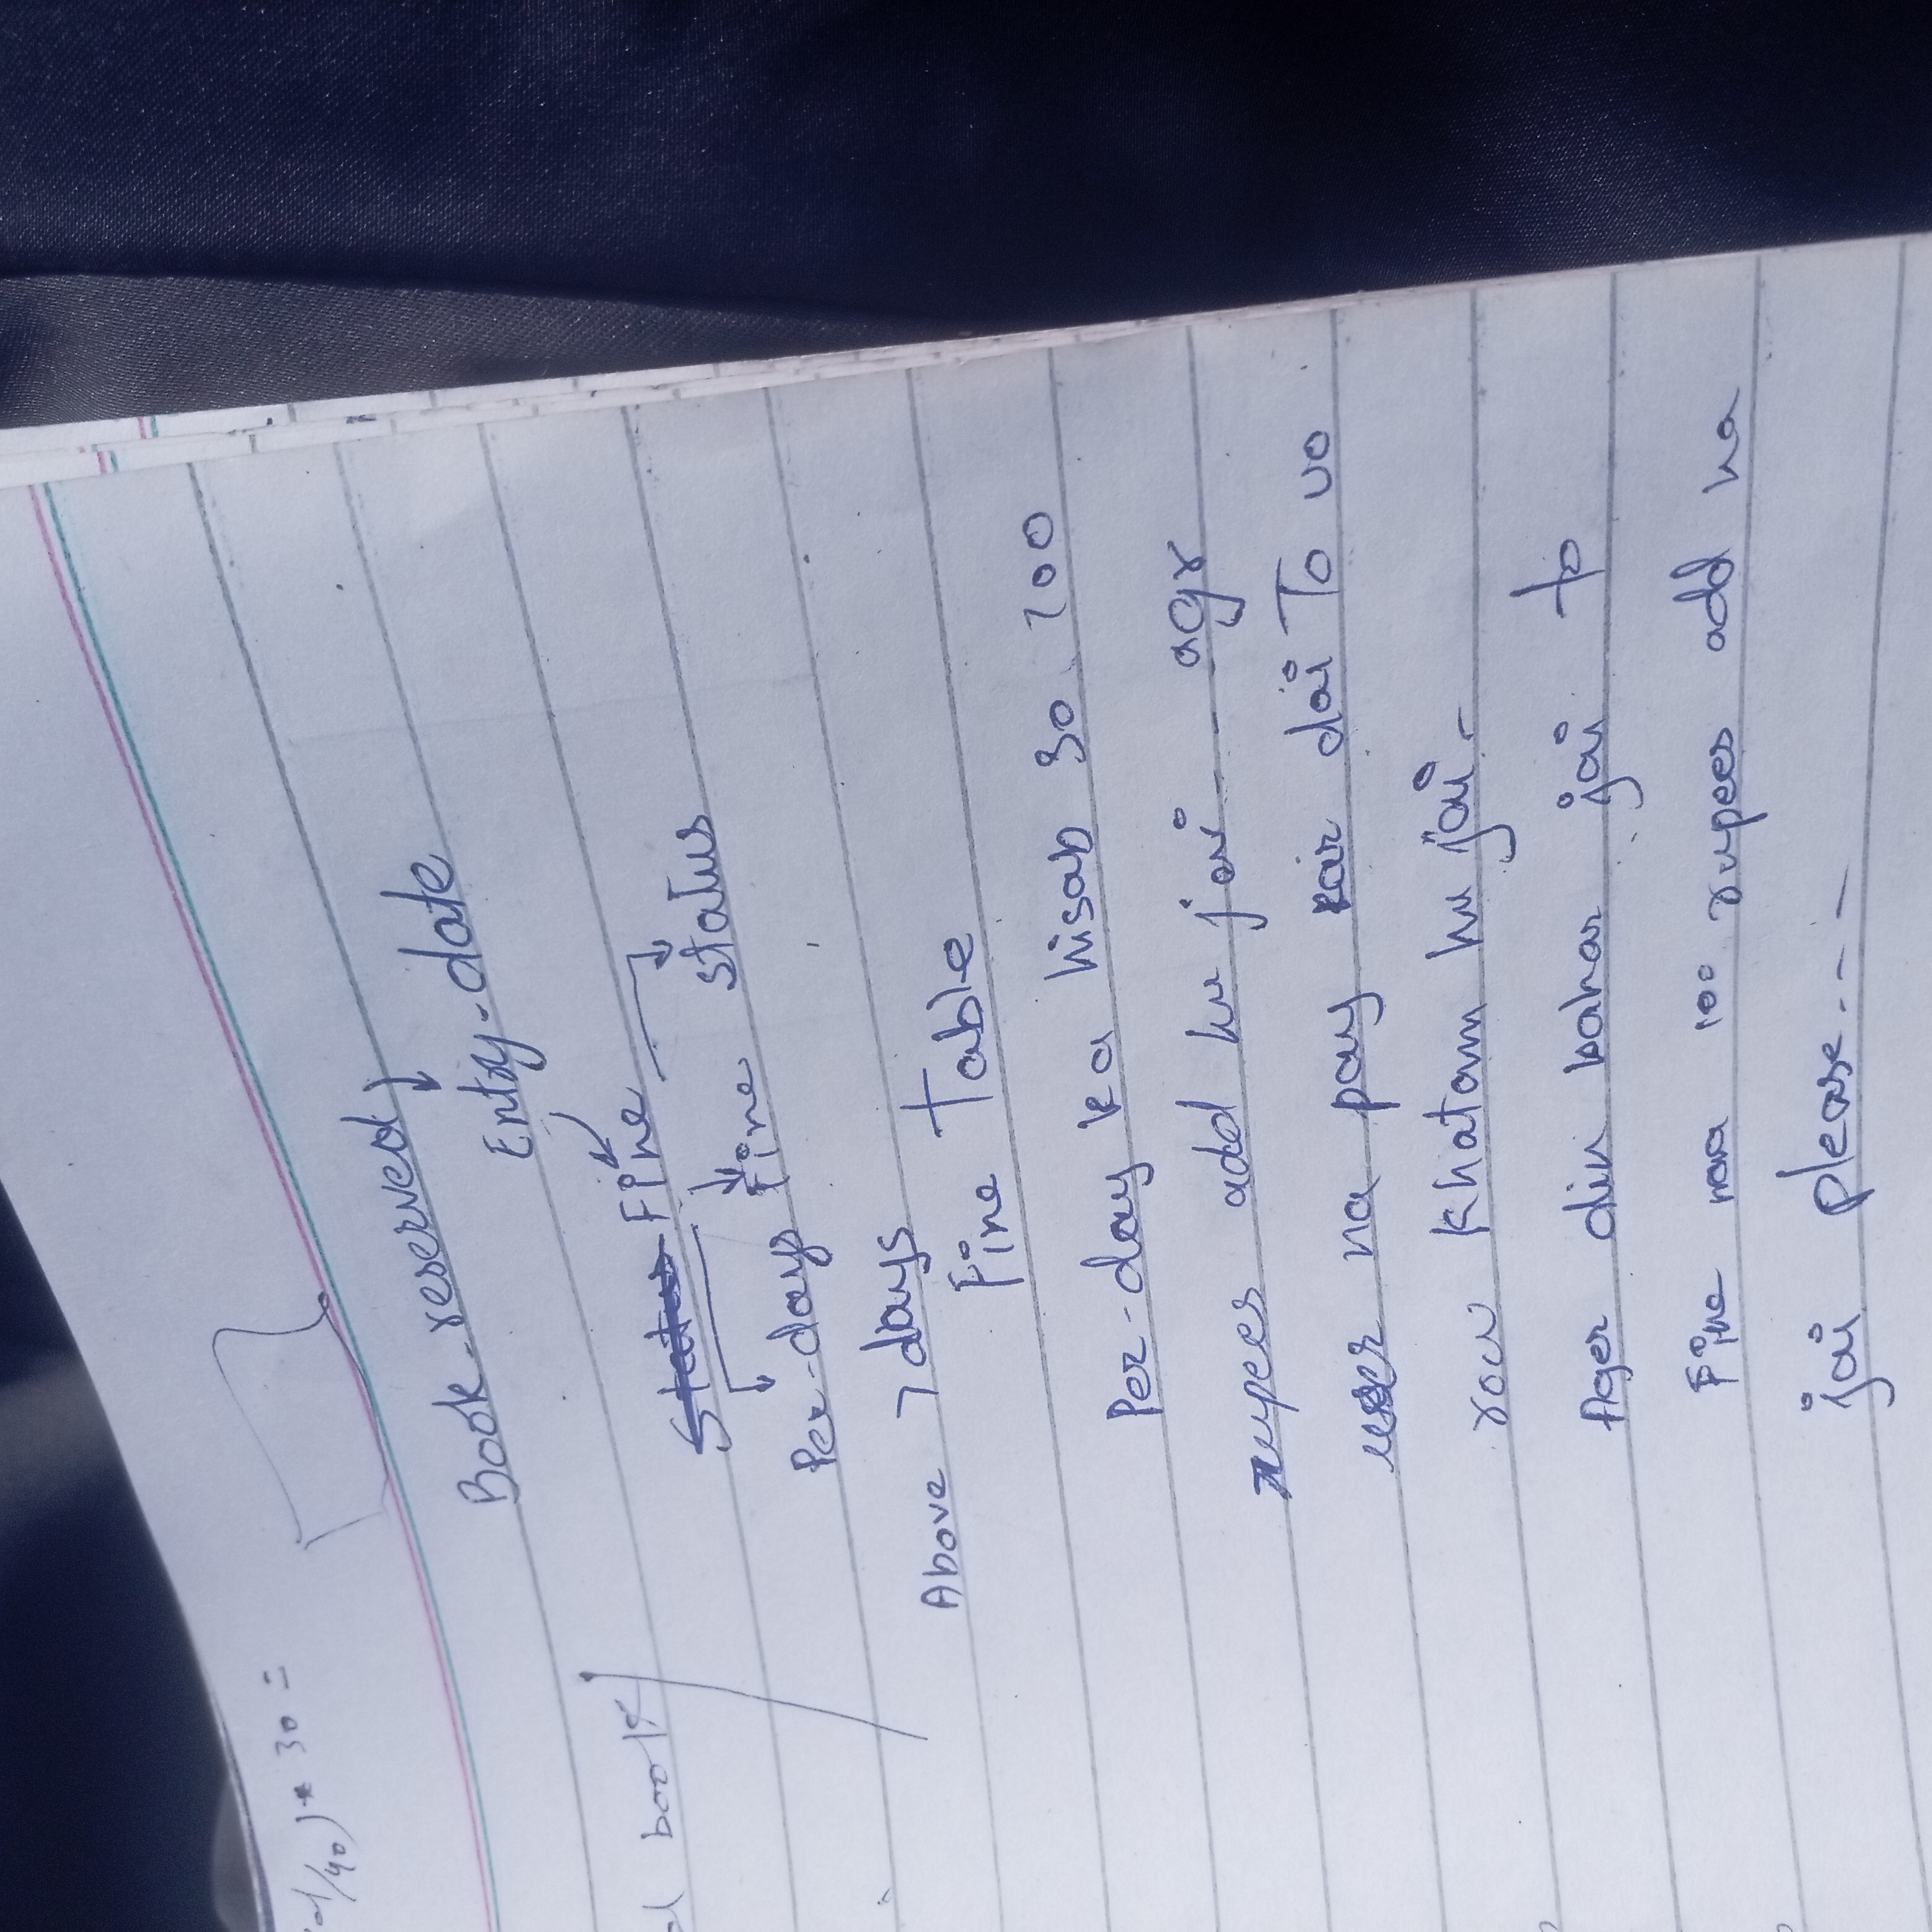 Book-reserved
Entry-date
Fine
Status
Per-days Fine
Above 7 days
Fine Table
Per-day ka hisab so 100
rupees add hu jai - - agr
user na pay kar dai To vo
row khatam hu jai -
Ager din bahar jai to
Fine ma 100 rupees add ho
jai please - - -
/40) * 30 =
book